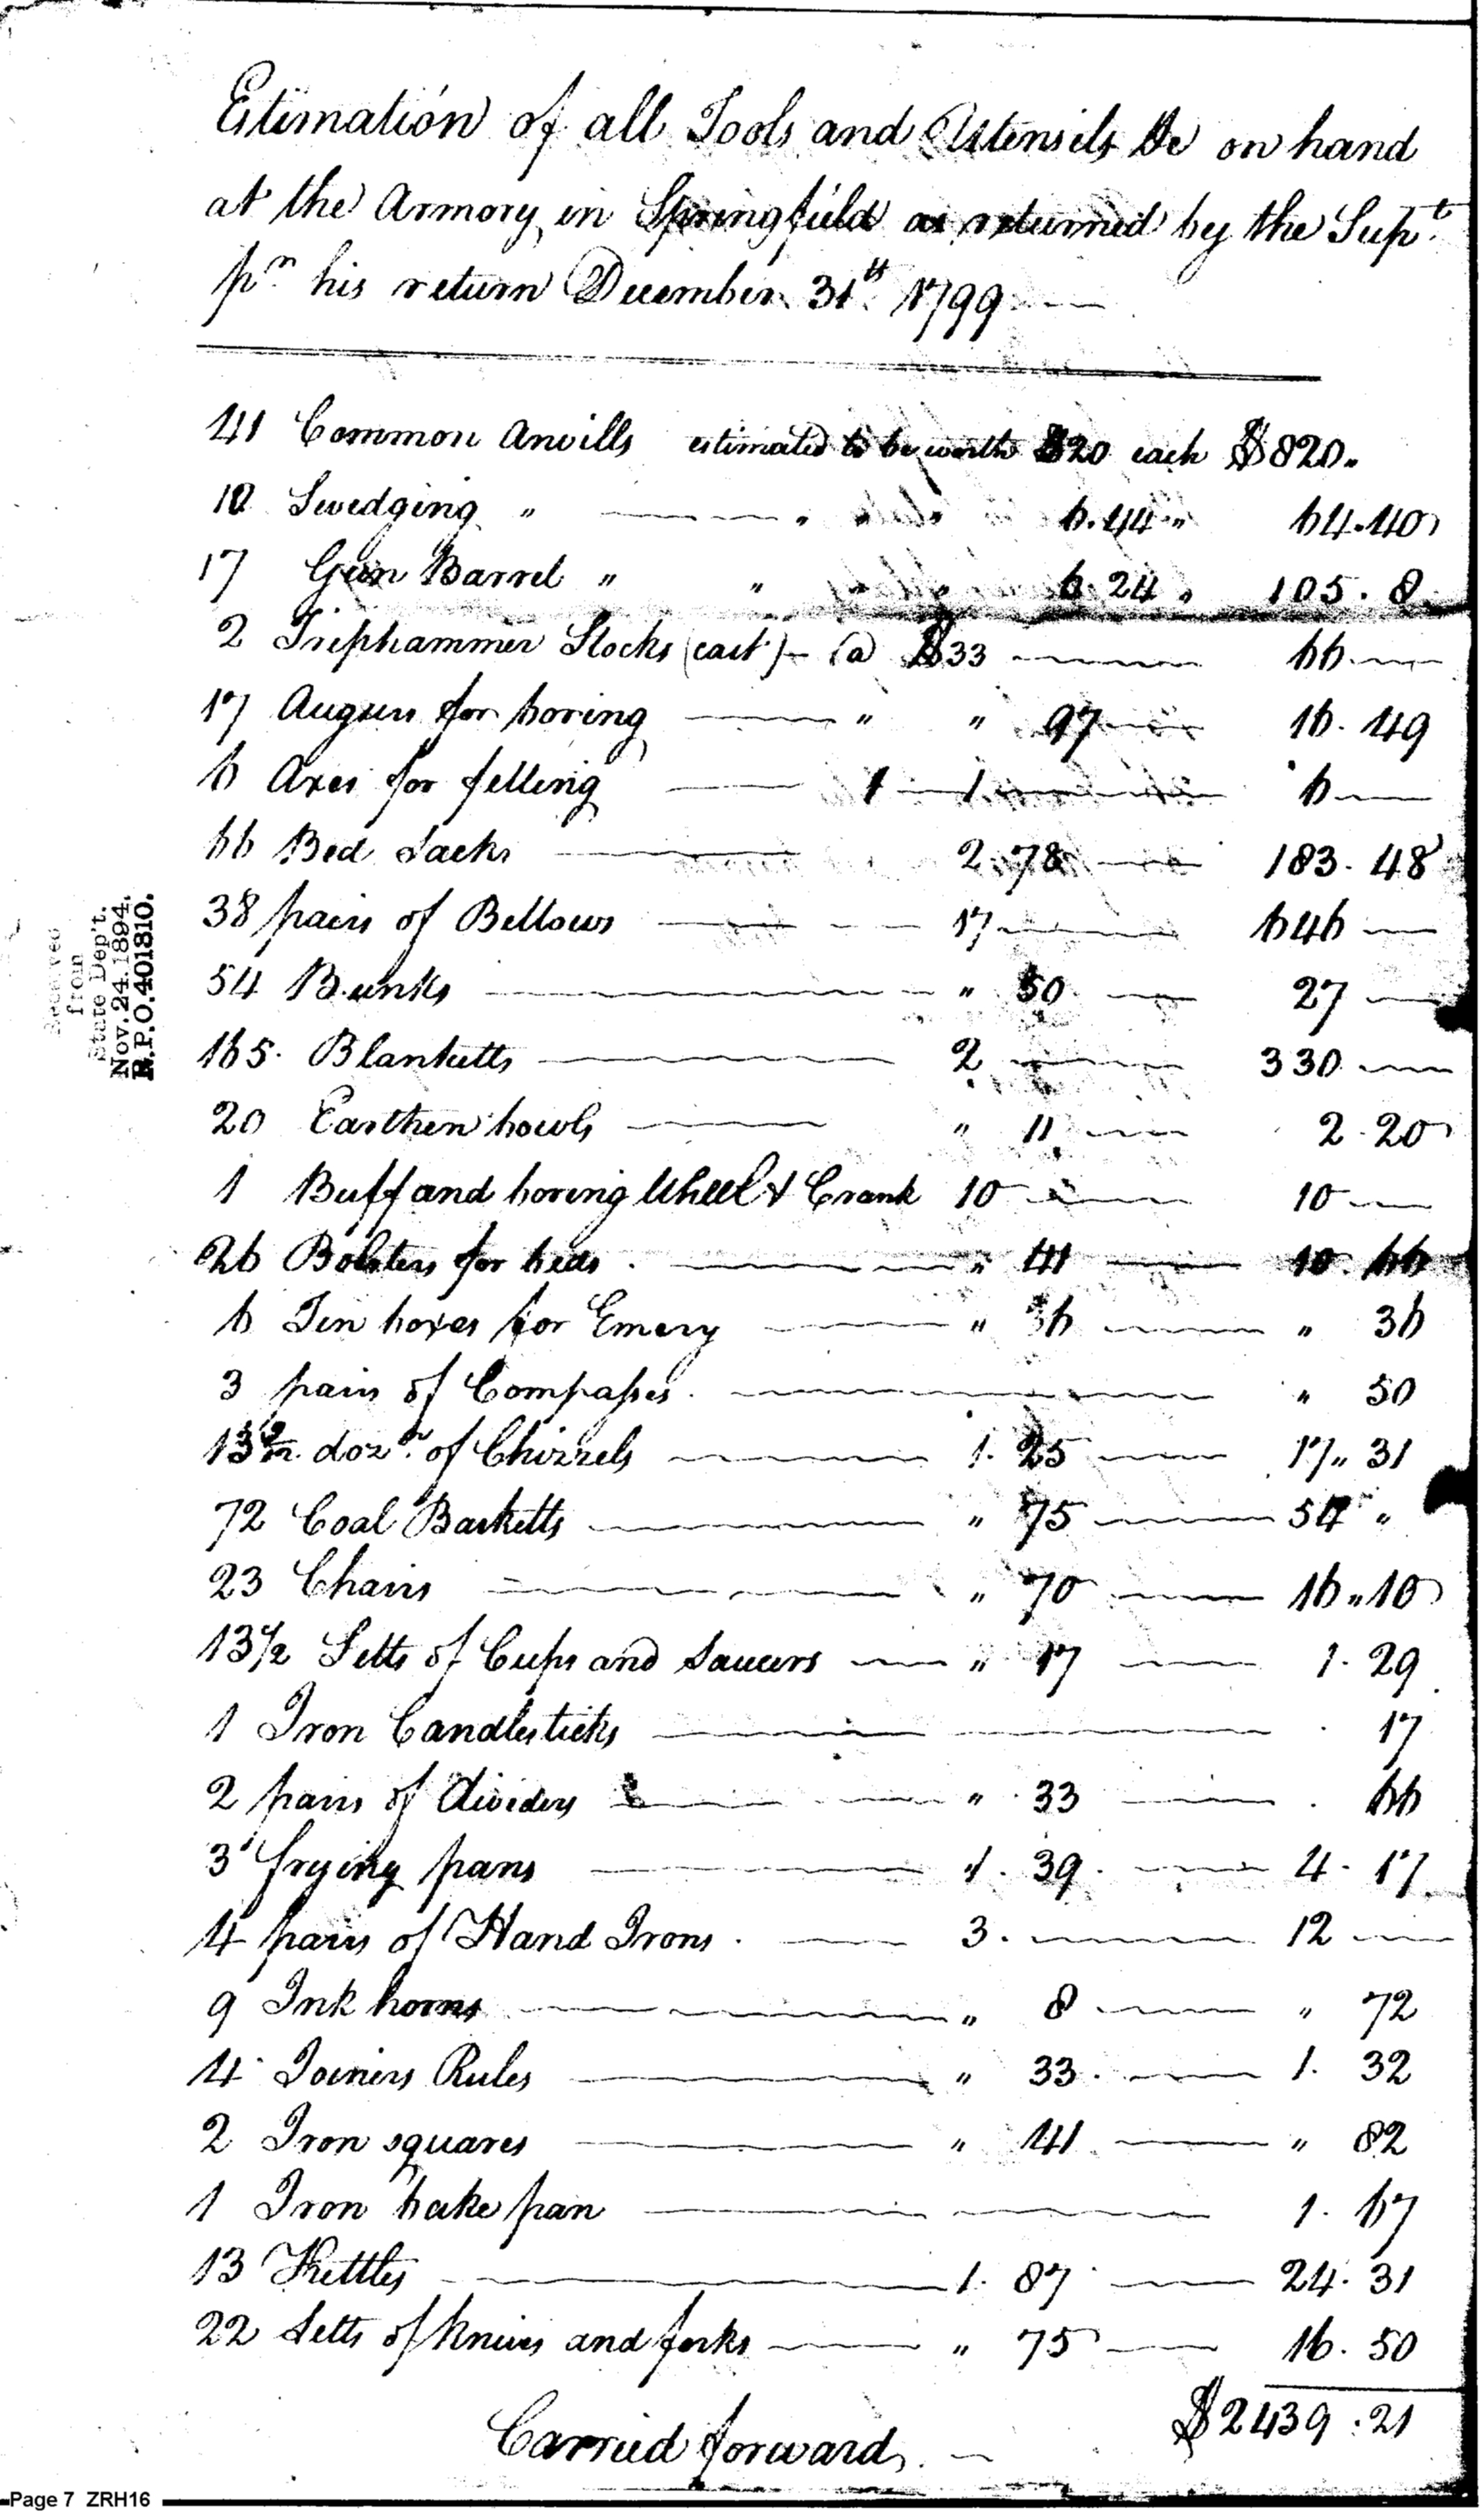 Estimation of all Tools and Utensils &c on hand
at the Armory in Springfield as returned by the Supt.
pr. his return December 31st. 1799
41 Common Anvills estimated to be worth $20 each $820..
10 Swedging " " " 6.44 " 64.40
17 Gun Barrel " " " 6.24 " 105.8
2 Triphammer Stocks (cast) @ $33 66
17 Augurs for boring " " 97 16.49
6 Axes for felling 1 6
66 Bed Sacks 2.78 183.48
38 pairs of Bellows 17 646
54 Bunks " 50 27
165. Blanketts 2 330
20 Earthen bowls " 11 2.20
1 Buff and boring Wheel & Crank 10 10
26 Bolsters for beds. " 41 10.66
6 Tin boxes for Emery " 36 " 36
3 pairs of Compasses. " 50
13 doz. of Chizzels 1.25 17.. 31
72 Coal Basketts " 75 54 "
23 Chairs " 70 16..10
13 1/2 Setts of Cups and Saucers " 17 1.29
1 Iron Candlesticks 17
2 pairs of dividers " 33 66
3 frying pans 1.39. 4.17
4 pairs of Hand Irons. 3. 12
9 Ink horns " 8 " 72
4 Joiners Rules " 33. 1.32
2 Iron squares " 41 " 82
1 Iron bake pan 1.67
13 Kettles 1.87 24.31
22 Setts of knives and forks " 75 16.50
Carried forward. $2439.21
Received
from
State Dep't.
Nov.24.1894.
R.P.O.401810.
Page 7 ZRH16